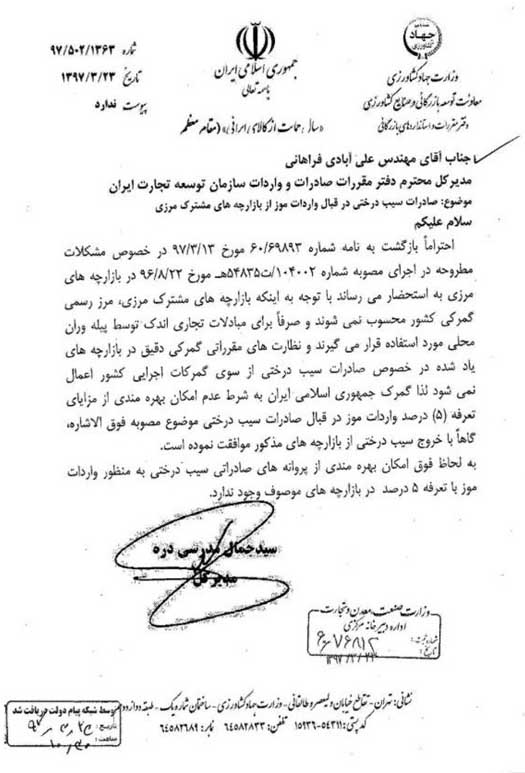 شماره ۹۷/۵۰۲/۱۳۶۳
تاریخ ۱۳۹۷/۳/۲۳
پیوست ندارد
جمهوری اسلامی ایران
باسمه تعالی
جهاد
وزارت جهاد کشاورزی
معاونت توسعه بازرگانی و صنایع کشاورزی
دفتر مقررات و استانداردهای بازرگانی
«سال حمایت از کالای ایرانی» (مقام معظم
جناب آقای مهندس علی آبادی فراهانی
مدیرکل محترم دفتر مقررات صادرات و واردات سازمان توسعه تجارت ایران
موضوع: صادرات سیب درختی در قبال واردات موز از بازارچه های مشترک مرزی
سلام علیکم
احتراماً بازگشت به نامه شماره ۶۰/۶۹۸۹۳ مورخ ۹۷/۳/۱۳ در خصوص مشکلات
مطروحه در اجرای مصوبه شماره ۱۰۴۰۰۲/ت۵۴۸۳۵هـ مورخ ۹۶/۸/۲۲ در بازارچه های
مرزی به استحضار می رساند با توجه به اینکه بازارچه های مشترک مرزی، مرز رسمی
گمرکی کشور محسوب نمی شوند و صرفاً برای مبادلات تجاری اندک توسط پیله وران
محلی مورد استفاده قرار می گیرند و نظارت های مقرراتی گمرکی دقیق در بازارچه های
یاد شده در خصوص صادرات سیب درختی از سوی گمرکات اجرایی کشور اعمال
نمی شود لذا گمرک جمهوری اسلامی ایران به شرط عدم امکان بهره مندی از مزایای
تعرفه (۵) درصد واردات موز در قبال صادرات سیب درختی موضوع مصوبه فوق الاشاره،
گاهاً با خروج سیب درختی از بازارچه های مذکور موافقت نموده است.
به لحاظ فوق امکان بهره مندی از پروانه های صادراتی سیب درختی به منظور واردات
موز با تعرفه ۵ درصد در بازارچه های موصوف وجود ندارد.
سیدجمال مدرسی دره
مدیرکل
وزارت صنعت، معدن و تجارت
اداره دبیرخانه مرکزی
شماره ثبت: ۶۰/۷۶۸۱۲
تاریخ:
نشانی: تهران - تقاطع خیابان ولیعصر و طالقانی - وزارت جهاد کشاورزی - ساختمان شماره یک - طبقه دوازدهم
کد پستی: ۵۴۳۱۱-۱۵۹۳۶ تلفن: ۶۴۵۸۲۸۳۳ نمابر: ۶۴۵۸۲۶۸۹
توسط شبکه پیام دولت دریافت شد
تاریخ:
ساعت: ۱۰/۳۰